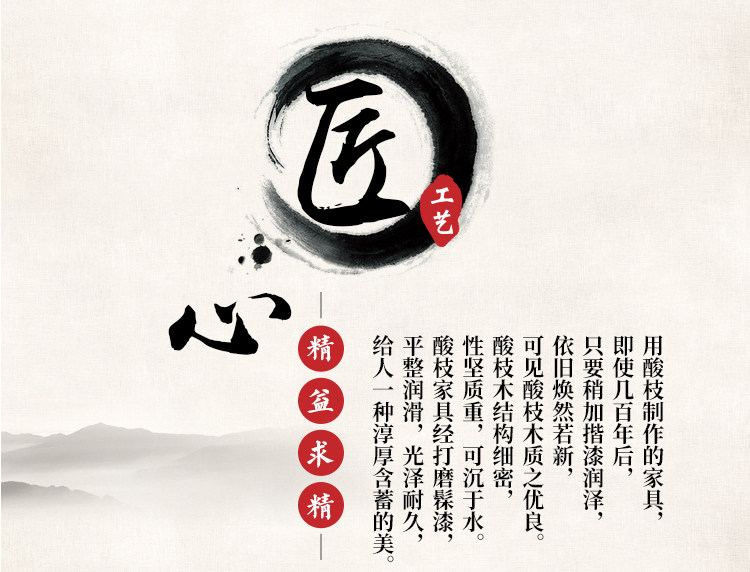 匠
工艺
心
精益求精
用酸枝制作的家具,
即使几百年后,
只要稍加揩漆润泽,
依旧焕然若新,
可见酸枝木质之优良。
酸枝木结构细密,
性坚质重,可沉于水。
酸枝家具经打磨髹漆,
平整润滑,光泽耐久,
给人一种淳厚含蓄的美。